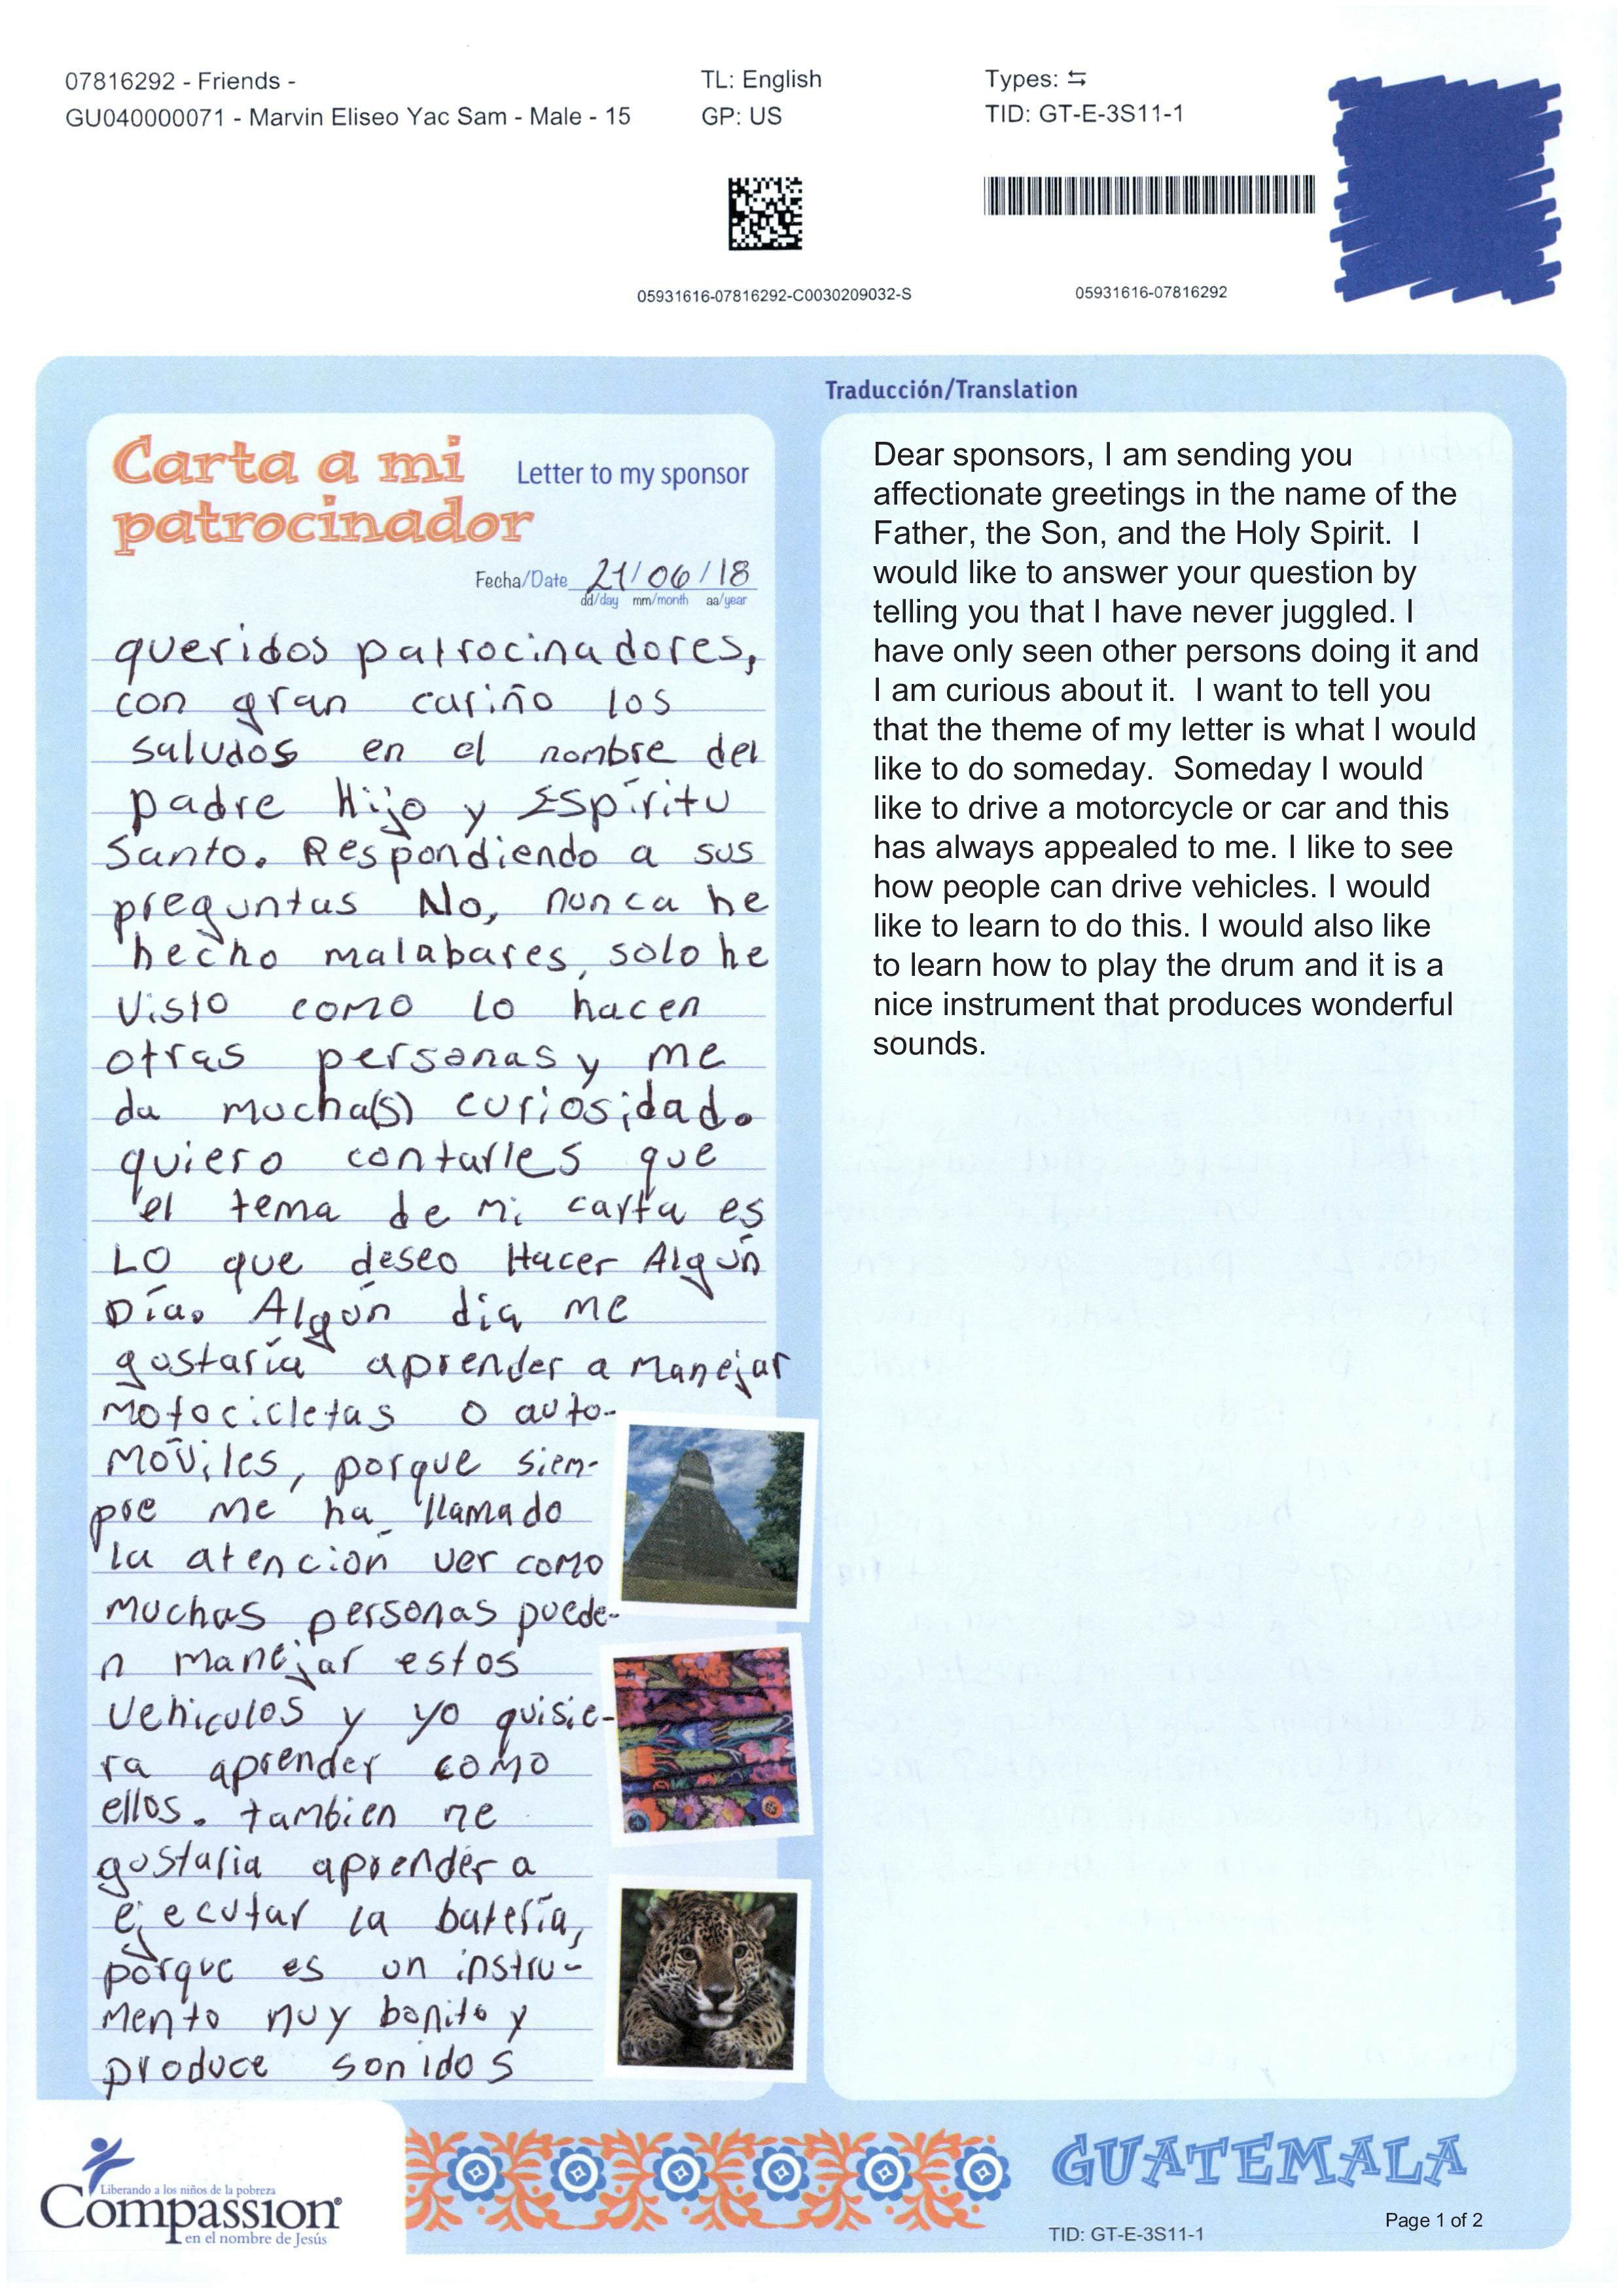 07816292 - Friends -
GU040000071 - Marvin Eliseo Yac Sam - Male - 15
TL: English
GP: US
Types: ⇆
TID: GT-E-3S11-1
05931616-07816292-C0030209032-S
05931616-07816292
Carta a mi
patrocinador
Letter to my sponsor
Fecha/Date 21/06/18
dd/day mm/month aa/year
queridos patrocinadores,
con gran cariño los
saludos en el nombre del
padre Hijo y Espíritu
Santo. Respondiendo a sus
preguntas No, nunca he
hecho malabares, solo he
visto como lo hacen
otras personas y me
da mucha(s) curiosidad.
quiero contarles que
el tema de mi carta es
LO que deseo Hacer Algún
Día. Algún día me
gustaría aprender a Manejar
Motocicletas o auto-
Móviles, porque siem-
pre me ha llamado
la atención ver como
muchas personas puede-
n manejar estos
vehiculos y yo quisie-
ra aprender como
ellos. tambien me
gustaria aprender a
ejecutar la batería,
porque es un instru-
mento muy bonito y
produce sonidos
Traducción/Translation
Dear sponsors, I am sending you
affectionate greetings in the name of the
Father, the Son, and the Holy Spirit. I
would like to answer your question by
telling you that I have never juggled. I
have only seen other persons doing it and
I am curious about it. I want to tell you
that the theme of my letter is what I would
like to do someday. Someday I would
like to drive a motorcycle or car and this
has always appealed to me. I like to see
how people can drive vehicles. I would
like to learn to do this. I would also like
to learn how to play the drum and it is a
nice instrument that produces wonderful
sounds.
Liberando a los niños de la pobreza
Compassion®
en el nombre de Jesús
GUATEMALA
TID: GT-E-3S11-1
Page 1 of 2